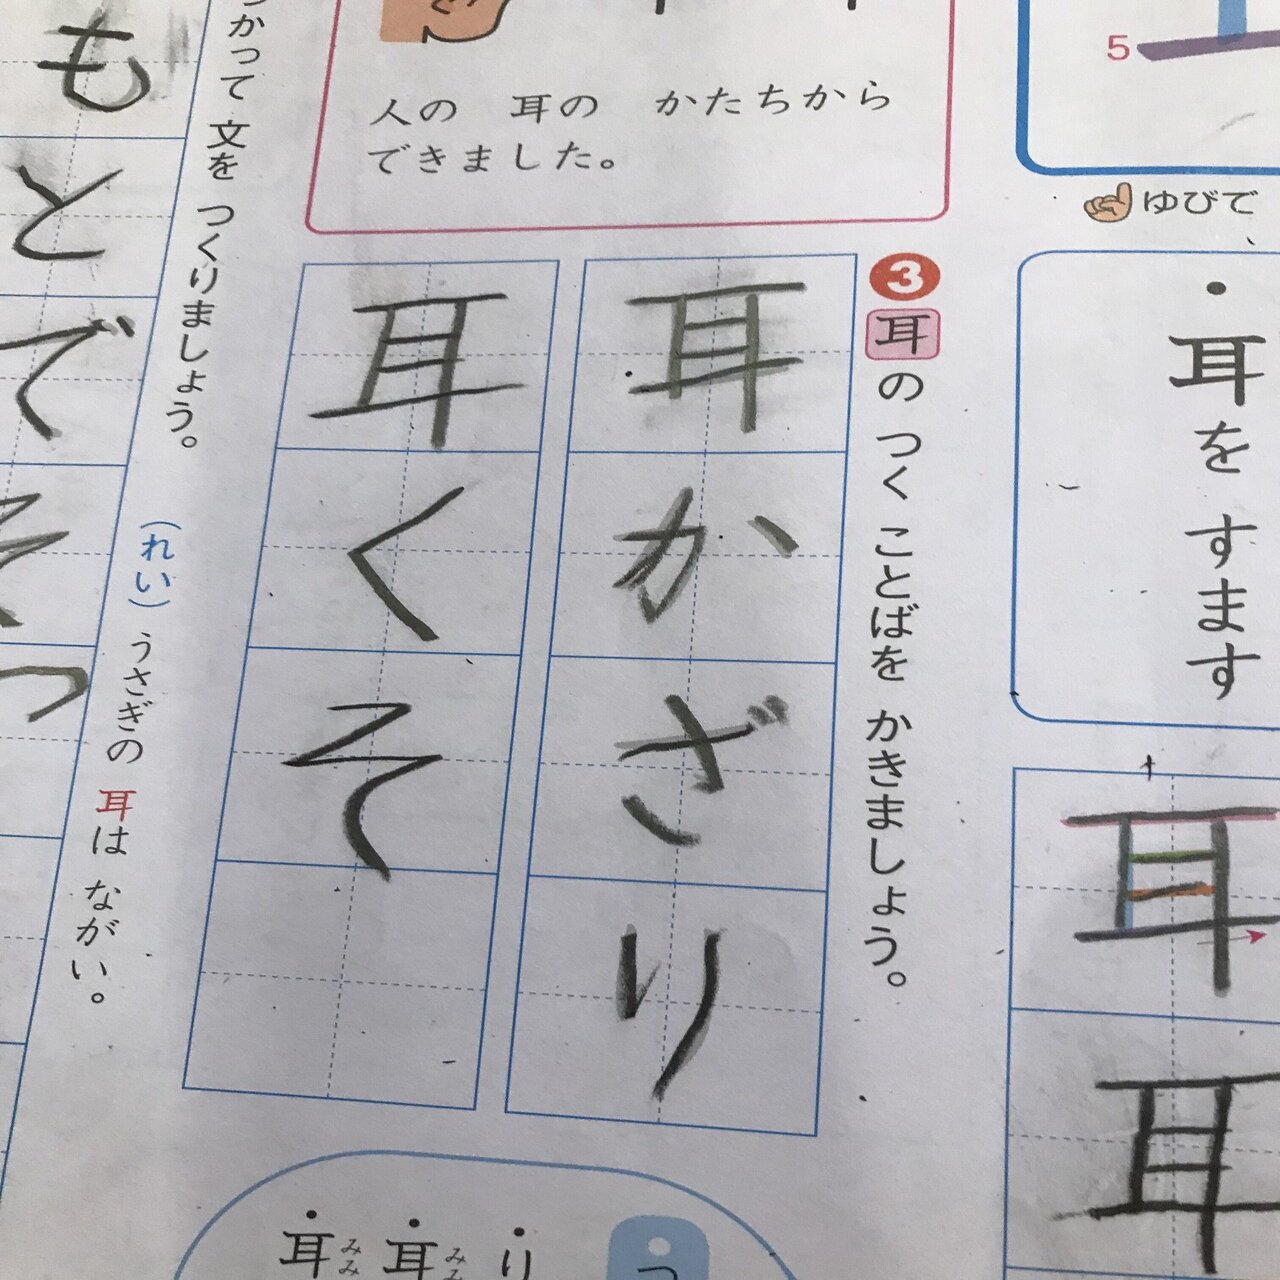 5
ゆびで
耳をすます
耳
耳
人の 耳の かたちから
できました。
3 耳の つく ことばを かきましょう。
耳かざり
耳くそ
かって 文を つくりましょう。
(れい) うさぎの 耳は ながい。
もとで
耳みみ 耳みみ り
つ